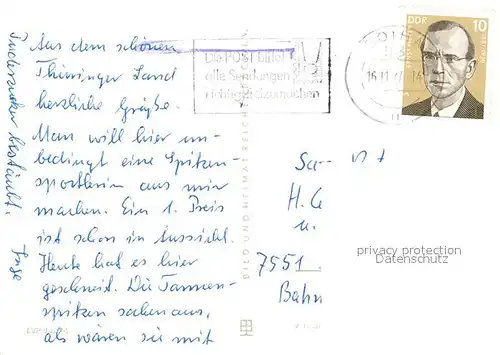 Aus dem schönen
Thüringer Land
herzliche Grüße.
Man will hier un-
bedingt eine Spitzen-
sportlerin aus mir
machen. Ein 1. Preis
ist schon in Aussicht.
Heute hat es hier
geschneit. Die Tannen-
spitzen sahen aus,
als wären sie mit
Puderzucker bestäubt.
Inge
Die POST bittet
alle Sendungen
DDR
10
BILD UND HEIMAT REICH
H. G
u.
7551
Bahn
privacy protection
Datenschutz